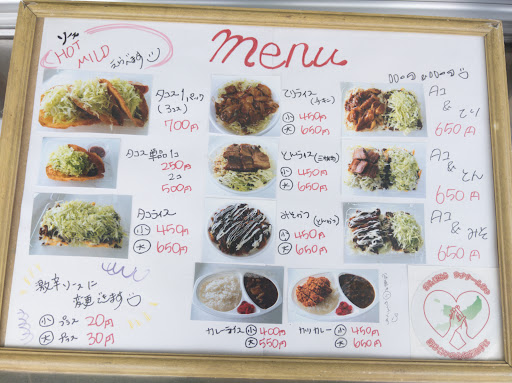 ソース
HOT
MILD
えらべます
menu
タコス1パック
(3コ入)
700円
タコス単品1コ
250円
2コ
500円
タコライス
小 450円
大 650円
激辛ソースに
変更できます
小 プラス 20円
大 プラス 30円
てりライス
(チキン)
小 450円
大 650円
とんライス(三枚肉)
小 450円
大 650円
みそかつ(とんかつ)
小 450円
大 650円
カレーライス 小 400円
大 550円
カツカレー 小 450円
大 650円
タコ
&
てり
650円
タコ
&
とん
650円
タコ
&
みそ
650円